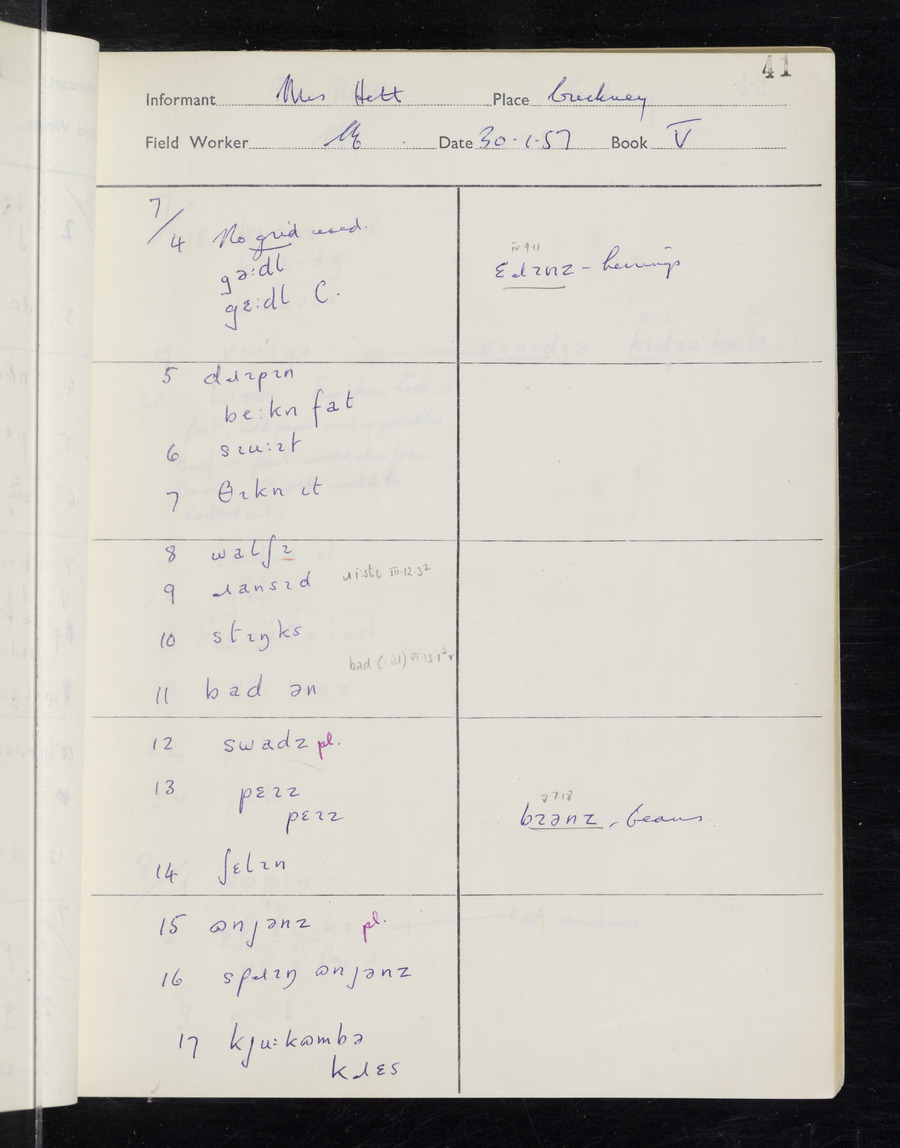 41
Informant Mrs Hett Place Cuckney
Field Worker Date 30·1·57 Book V
7/4 No grid used.
gəːdl
gɛːdl C.
IV 9·11
ɛɹɪnz – herrings
5 dɹɪpɪn
beːkn fat
6 sɪuːɪt
7 θɪkn ɪt
8 watʃɪ
9 ɹansɪd ɹiːstɪ III·12·3²
10 stɪŋks
bad (:ill) VI·13·1³
11 bad ən
12 swadz pl.
13 pɛɪz
pɛɪz
V 7·18
bɪənz – beans
14 ʃɛlɪn
15 ɷnjənz pl.
16 spɹɪŋ ɷnjənz
17 kjuːkɷmbə
kɹɛs